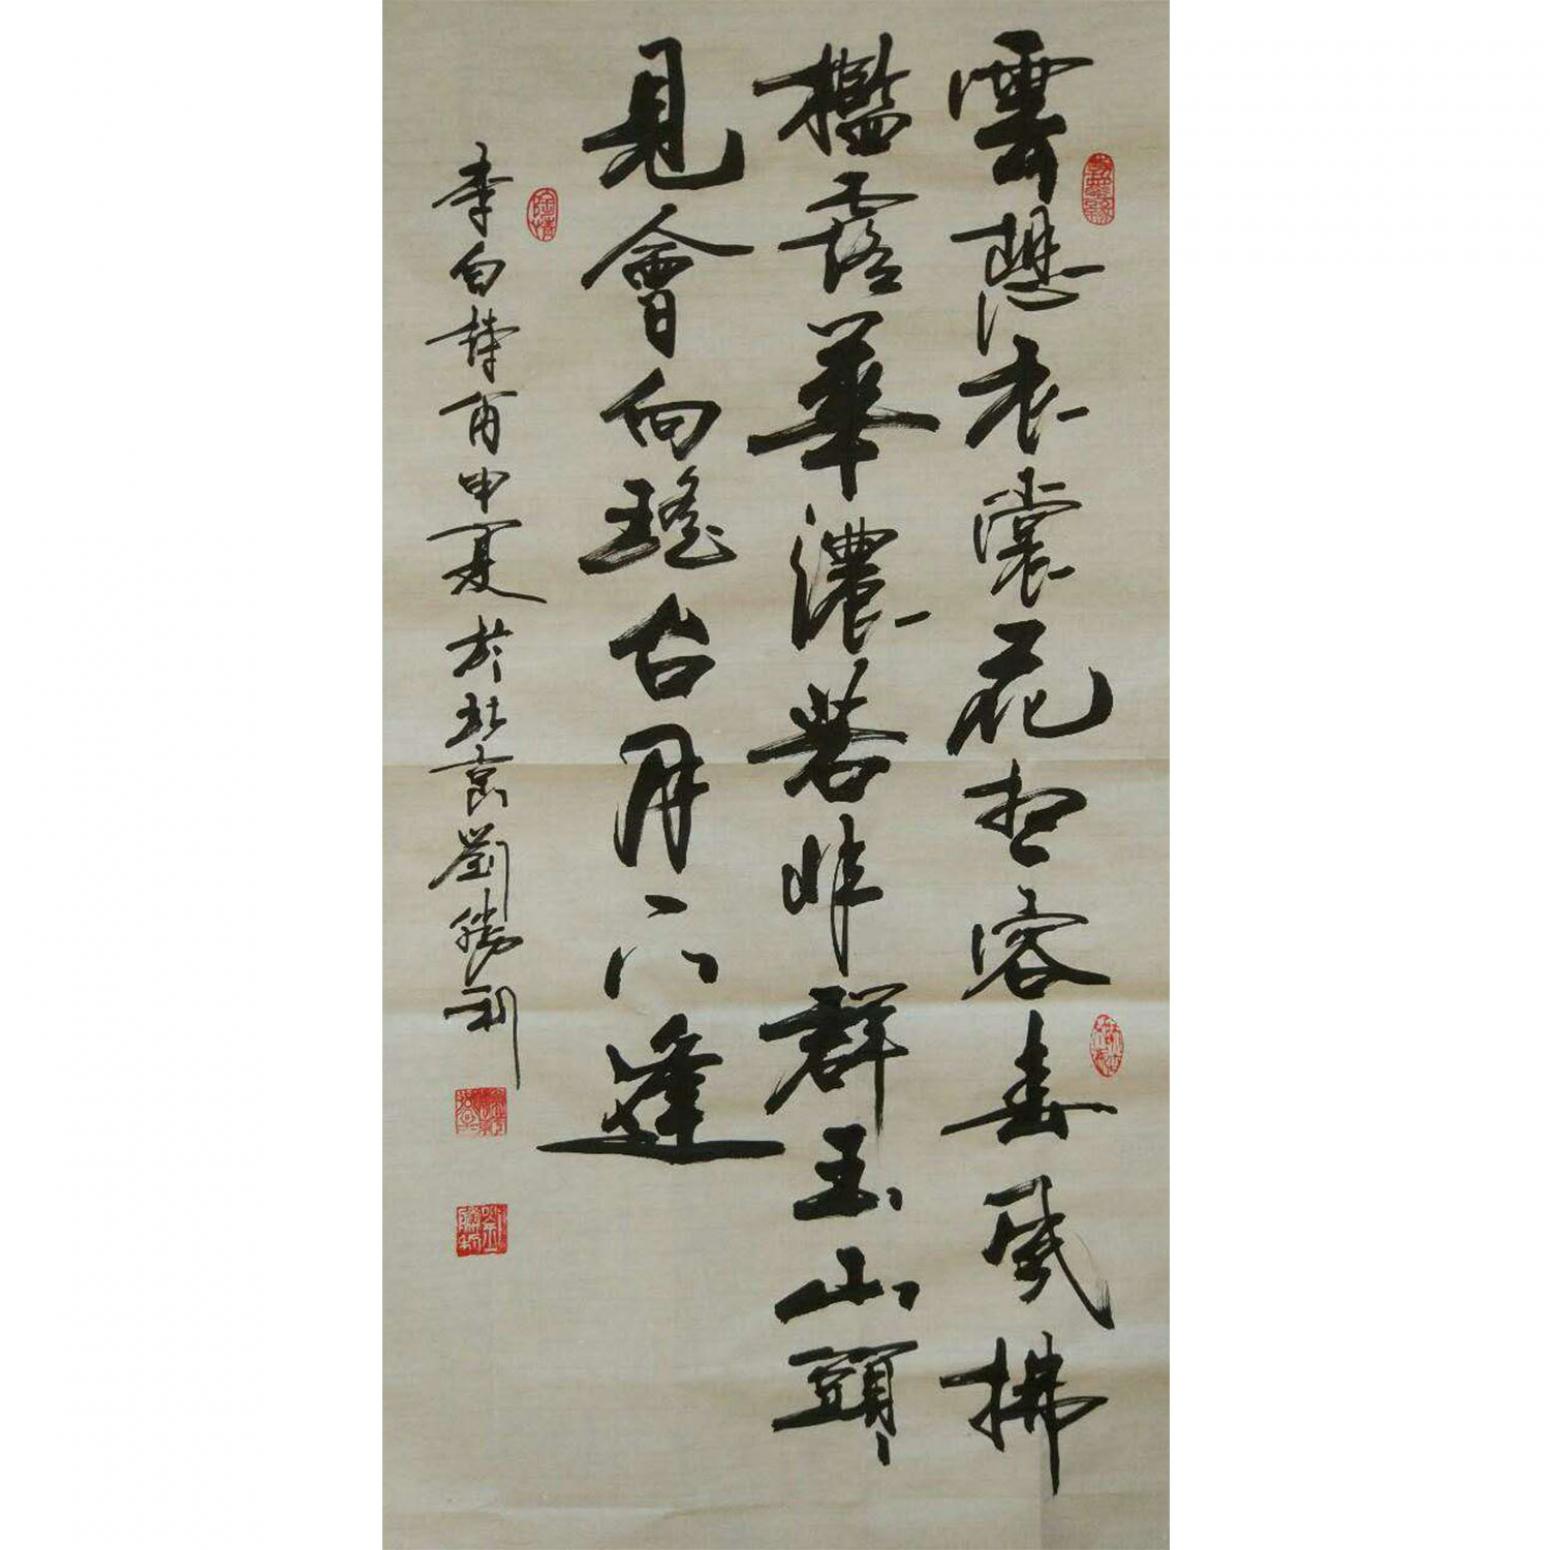 雲想衣裳花想容春風拂
檻露華濃若非群玉山頭
見會向瑤台月下逢
李白詩丙申夏於北京劉勝利
劉勝利